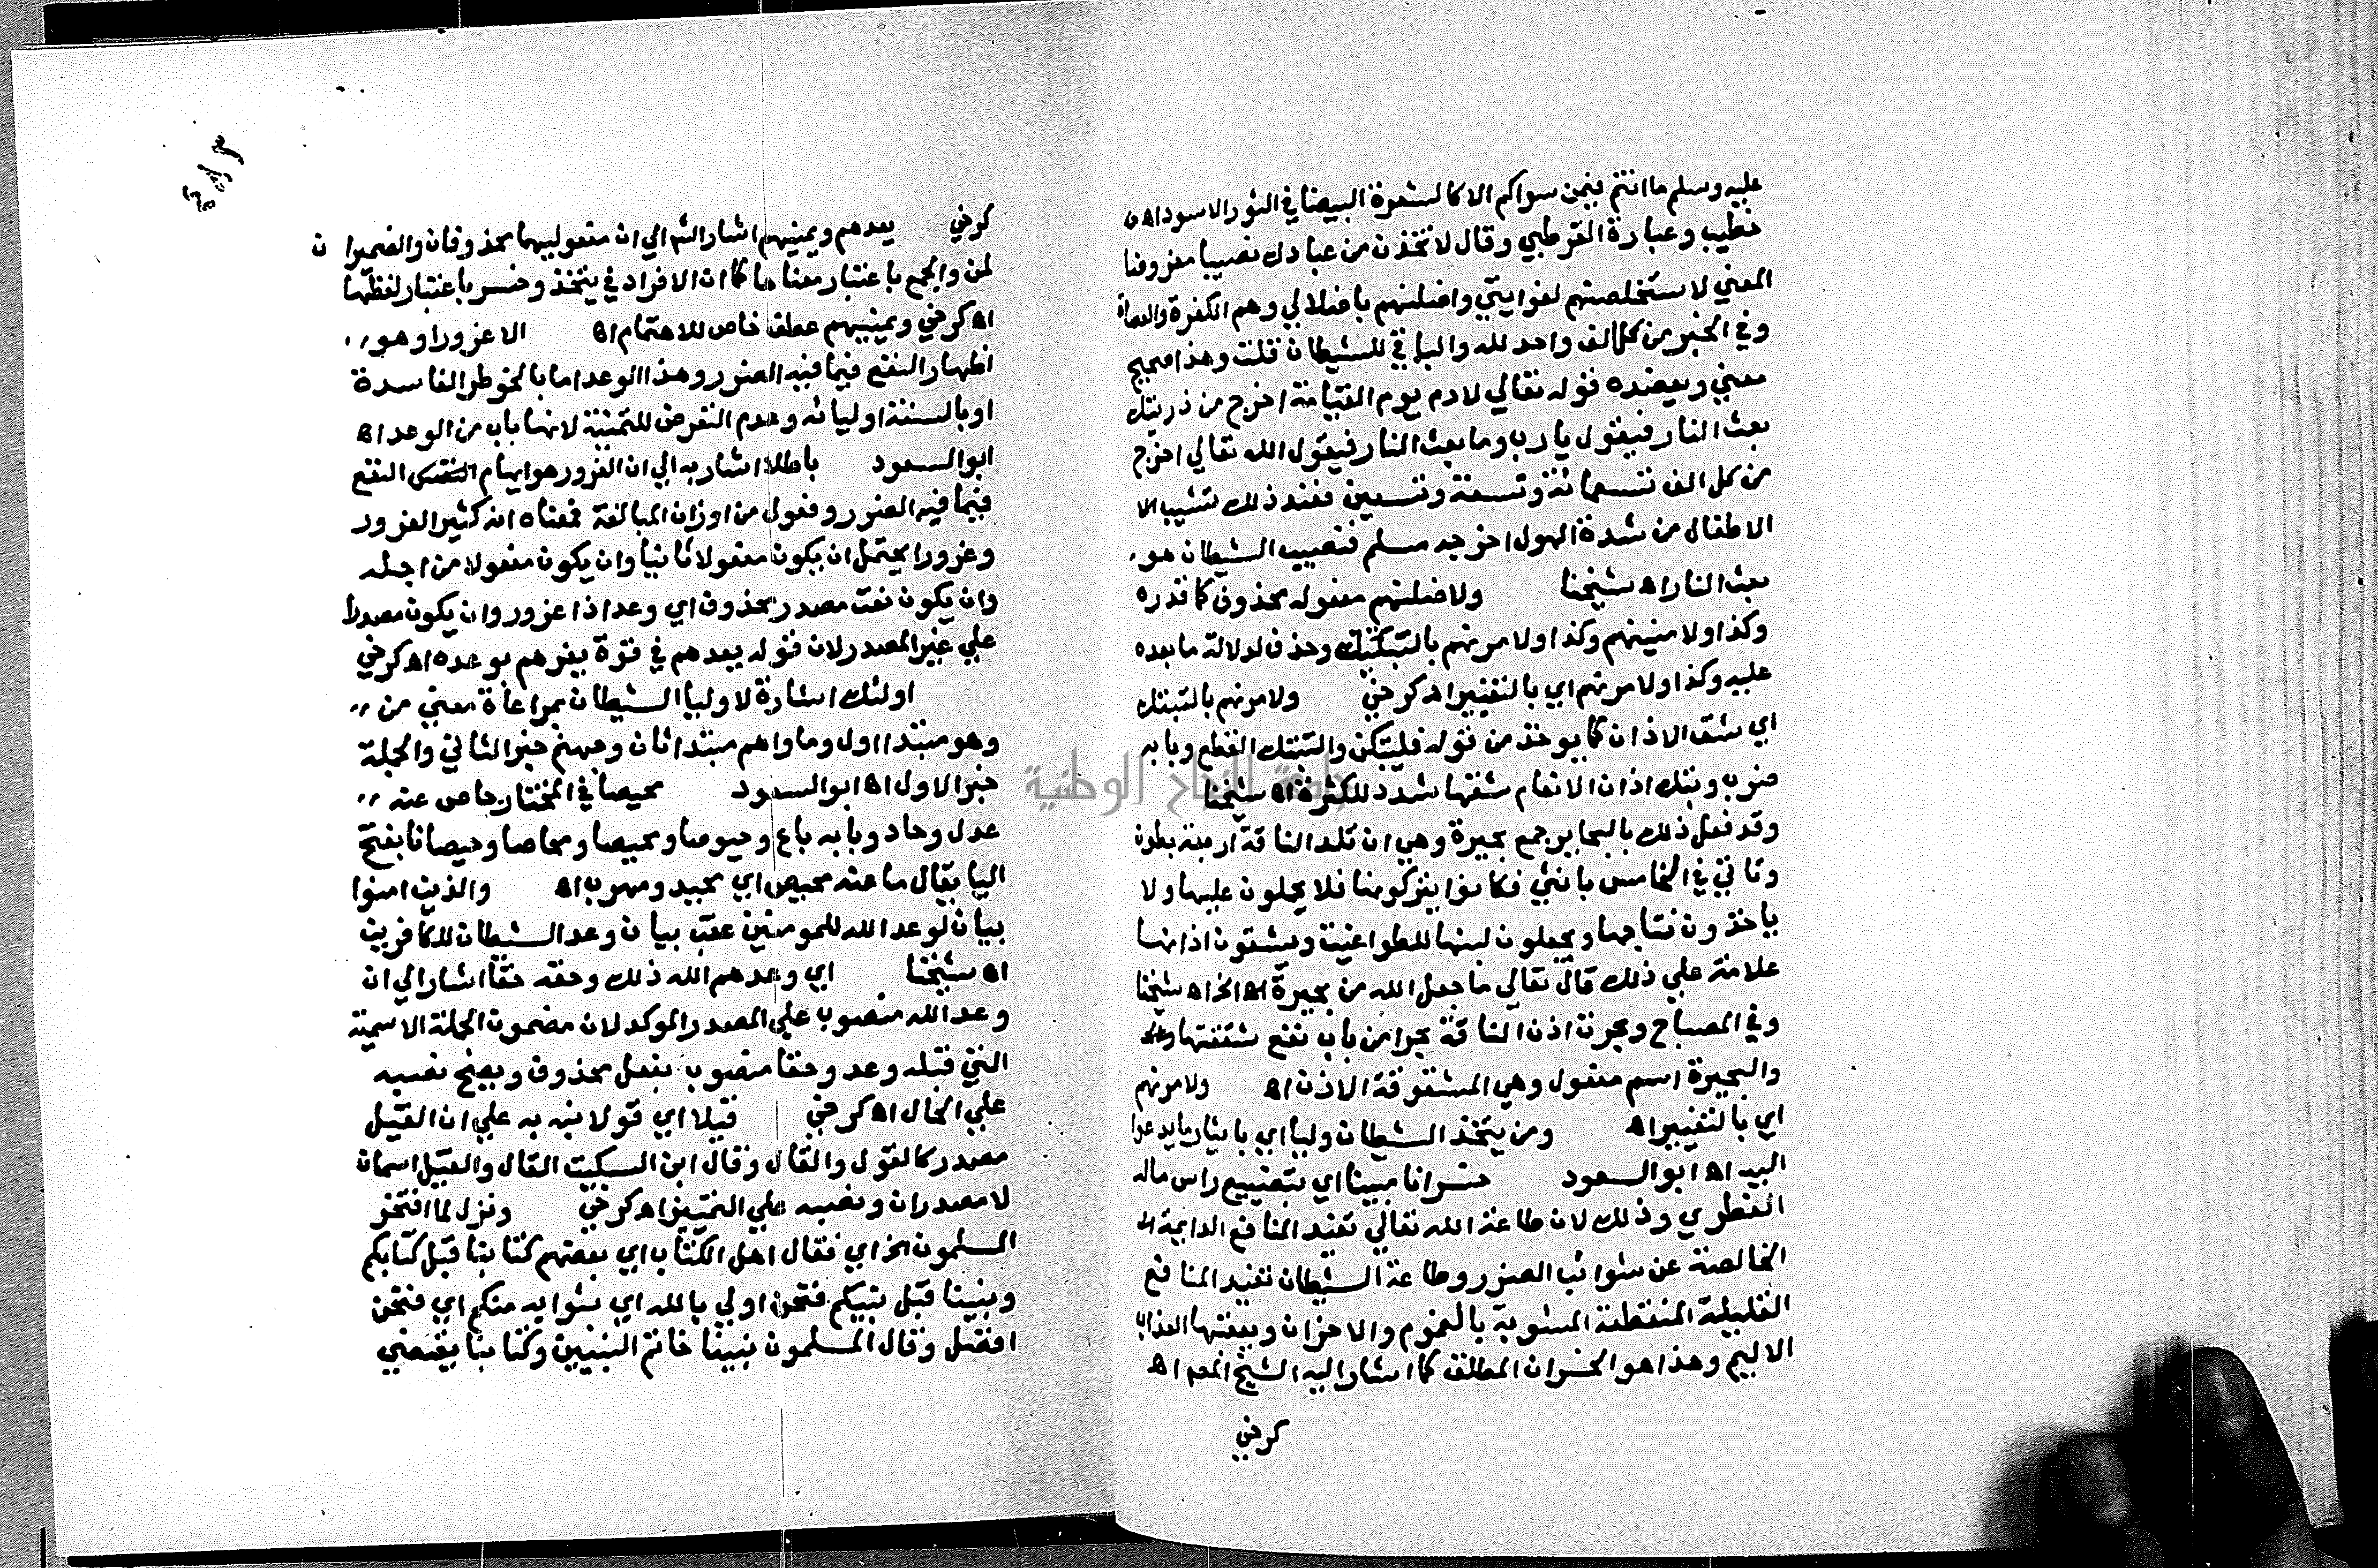 عليه وسلم ما انتم فيمن سواكم الا كالشعرة البيضا في الثور الاسود اه
خطيب وعبارة القرطبي وقال لاتخذن من عبادك نصيبا مفروضا
المعني لاستخلصنهم لغوايتي واضلنهم باضلالي وهم الكفرة والعصاة
وفي الخبر من كل الف واحد لله والباقي للشيطان قلت وهذا صحيح
معني ويعضده قوله تعالي لادم يوم القيامة اخرج من ذريتك
بعث النار فيقول يا رب وما بعث النار فيقول الله تعالي اخرج
من كل الف تسعمائة وتسعة وتسعين فعند ذلك تشيب الا
الاطفال من شدة الهول اخرجه مسلم فنصيب الشيطان هو
بعث النار اه شيخنا ولاضلنهم مفعوله محذوف كما قدره
وكذا ولامنينهم وكذا ولامرنهم بالتبتيك وحذف لدلالة ما بعده
عليه وكذا ولامرنهم اي بالتغيير اه كرخي ولامرنهم بالتبتك
اي شق الاذان كما يوخذ من قوله فليبتكن والتبتك القطع وبابه
ضرب وبتك اذان الانعام شقها شدد للكثرة اه شيخنا
وقد فعل ذلك بالبحاير جمع بحيرة وهي ان تلد الناقة اربعة بطون
وتاتي في الخامس بانثي فكانوا يتركونها فلا يحملون عليها ولا
ياخذون نتاجها ويجعلون لبنها للطواغيت ويشقون اذانها
علامة علي ذلك قال تعالي ما جعل الله من بحيرة اه الخ اه شيخنا
وفي المصباح وبحرت اذن الناقة بحرا من باب نفع شققتها
والبحيرة اسم مفعول وهي المشقوقة الاذن اه ولامرنهم
اي بالتغيير اه ومن يتخذ الشيطان وليا اي بايثار ما يدعوا
اليه اه ابو السعود خسرانا مبينا اي بتضييع راس ماله
الفطري وذلك لان طاعة الله تعالي تفيد المنافع الدايمة ال
الخالصة عن شوائب الضرر وطاعة الشيطان تفيد المنافع
القليلة المنقطعة المشوبة بالغموم والاحزان ويعقبها العذاب
الاليم وهذا هو الخسران المطلق كما اشار اليه الشيخ المص اه
كرخي
كرخي يعدهم ويمنيهم اشار الشم الي ان مفعوليهما محذوفان والضميران
لمن والجمع باعتبار معناها كما ان الافراد في يتخذ وخسر باعتبار لفظها
اه كرخي ويمنيهم عطف خاص للاهتمام اه الا غرورا وهو
اظهار النفع فيما فيه الضرر وهذا الوعد اما بالخوطر الفاسدة
او بالسنة اوليائه وعدم التعرض للتمنية لانها باب من الوعد اه
ابو السعود باطلا اشار به الي ان الغرور هو ايهام النفع
فيما فيه الضرر وفعول من اوزان المبالغة فمعناه انه كثير الغرور
وغرورا يحتمل ان يكون مفعولا ثانيا وان يكون مفعولا من اجله
وان يكون نعت مصدر محذوف اي وعدا ذا غرور وان يكون مصدرا
علي غير المصدر لان قوله يعدهم في قوة يغرهم بوعده اه كرخي
اولئك اشارة لاوليا الشيطان بمراعاة معني من
وهو مبتدا اول وماواهم مبتدا ثان وجهنم خبر الثاني والجملة
خبر الاول اه ابو السعود محيصا في المختار حاص عنه
عدل وحاد وبابه باع وحيوصا ومحيصا ومحاصا وحيصانا بفتح
اليا يقال ما عنه محيص اي محيد ومهرب اه والذين امنوا
بيان لوعد الله للمومنين عقب بيان وعد الشيطان للكافرين
اه شيخنا اي وعدهم الله ذلك وحقه حقا اشار الي ان
وعد الله منصوب علي المصدر الموكد لان مضمون الجملة الاسمية
التي قبله وعد وحقا منصوب بفعل محذوف ويصح نصبه
علي الحال اه كرخي قيلا اي قولا نبه به علي ان القيل
مصدر كالقول والقال وقال ابن السكيت القال والقيل اسمان
لا مصدران ونصبه علي التمييز اه كرخي ونزل لما افتخر
المسلمون الخ اي فقال اهل الكتاب اي بعضهم كتابنا قبل كتابكم
ونبينا قبل نبيكم فنحن اولي بالله اي بثوابه منكم اي فنحن
افضل وقال المسلمون نبينا خاتم النبيين وكتابنا يقضي
جامعة النجاح الوطنية